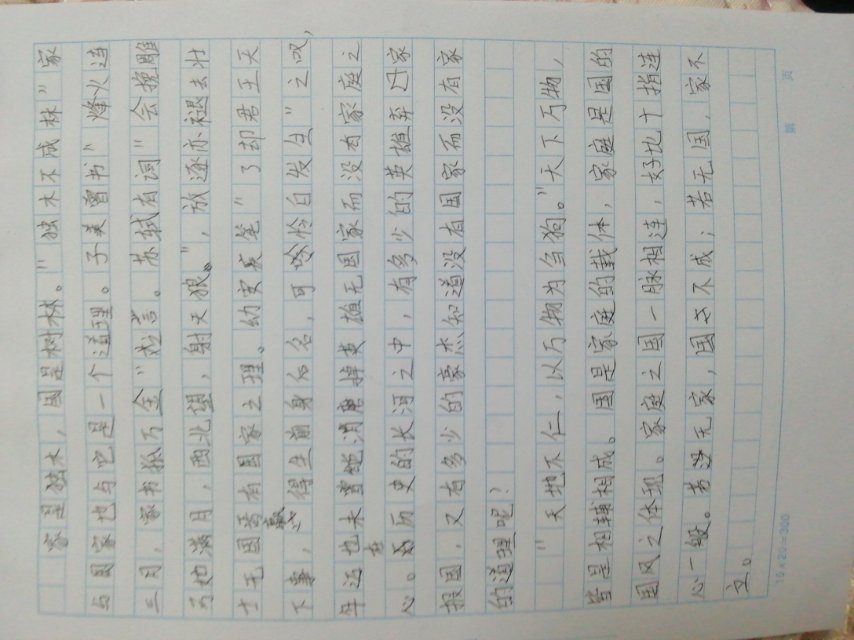 家是独木，国是树林。"独木不成林"家
与国家也与它是一个道理。子美曾书"烽火连
三月，家书抵万金"之言。苏轼有词"会挽雕
弓如满月，西北望，射天狼。"，放逐亦褪去壮
士无国焉有国家之理。幼安英笔"了却君王天
下事，赢得生前身后名，可怜白发生"之叹，
年迈也未曾能消磨掉英雄无国家而没有家庭之
心。在历史的长河之中，有多少的英雄弃己家
报国，又有多少的豪杰知道没有国家而没有家
的道理呢？
"天地不仁，以万物为刍狗。"天下万物，
皆是相辅相成。国是家庭的载体，家庭是国的
国风之体现。家庭之国一脉相连，好比十指连
心一般。若没无家，国亦不成；若无国，家不
立。
第 页
15×20=300